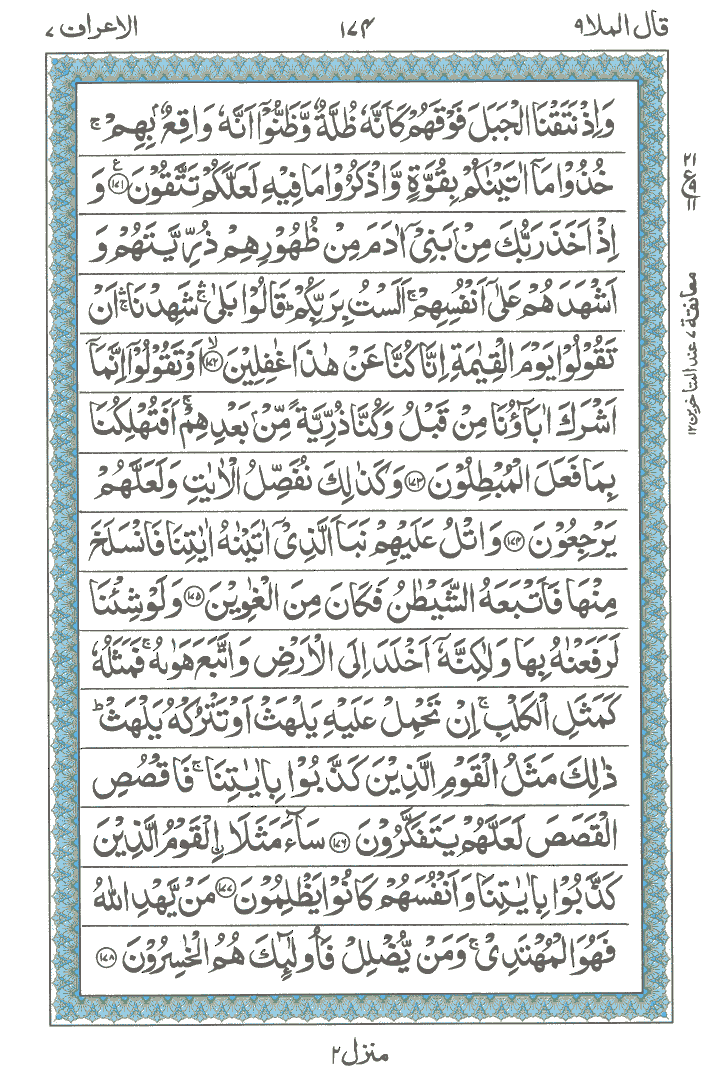 قال الملا ۹ ۱۷۴ الاعراف ۷
وَاِذْ نَتَقْنَا الْجَبَلَ فَوْقَهُمْ كَاَنَّهٗ ظُلَّةٌ وَّظَنُّوْۤا اَنَّهٗ وَاقِعٌۢ بِهِمْ ۚ
خُذُوْا مَاۤ اٰتَيْنٰكُمْ بِقُوَّةٍ وَّاذْكُرُوْا مَا فِيْهِ لَعَلَّكُمْ تَتَّقُوْنَ ﴿۱۷۱﴾ ع وَ
اِذْ اَخَذَ رَبُّكَ مِنْۢ بَنِيْۤ اٰدَمَ مِنْ ظُهُوْرِهِمْ ذُرِّيَّتَهُمْ وَ
اَشْهَدَهُمْ عَلٰۤى اَنْفُسِهِمْ ۚ اَلَسْتُ بِرَبِّكُمْ ؕ قَالُوْا بَلٰى ۛۚ شَهِدْنَا ۛۚ اَنْ
تَقُوْلُوْا يَوْمَ الْقِيٰمَةِ اِنَّا كُنَّا عَنْ هٰذَا غٰفِلِيْنَ ﴿۱۷۲﴾ ۙ اَوْ تَقُوْلُوْۤا اِنَّمَاۤ
اَشْرَكَ اٰبَآؤُنَا مِنْ قَبْلُ وَكُنَّا ذُرِّيَّةً مِّنْۢ بَعْدِهِمْ ۚ اَفَتُهْلِكُنَا
بِمَا فَعَلَ الْمُبْطِلُوْنَ ﴿۱۷۳﴾ وَكَذٰلِكَ نُفَصِّلُ الْاٰيٰتِ وَلَعَلَّهُمْ
يَرْجِعُوْنَ ﴿۱۷۴﴾ وَاتْلُ عَلَيْهِمْ نَبَاَ الَّذِيْۤ اٰتَيْنٰهُ اٰيٰتِنَا فَانْسَلَخَ
مِنْهَا فَاَتْبَعَهُ الشَّيْطٰنُ فَكَانَ مِنَ الْغٰوِيْنَ ﴿۱۷۵﴾ وَلَوْ شِئْنَا
لَرَفَعْنٰهُ بِهَا وَلٰكِنَّهٗۤ اَخْلَدَ اِلَى الْاَرْضِ وَاتَّبَعَ هَوٰىهُ ۚ فَمَثَلُهٗ
كَمَثَلِ الْكَلْبِ ۚ اِنْ تَحْمِلْ عَلَيْهِ يَلْهَثْ اَوْ تَتْرُكْهُ يَلْهَثْ ؕ
ذٰلِكَ مَثَلُ الْقَوْمِ الَّذِيْنَ كَذَّبُوْا بِاٰيٰتِنَا ۚ فَاقْصُصِ
الْقَصَصَ لَعَلَّهُمْ يَتَفَكَّرُوْنَ ﴿۱۷۶﴾ سَآءَ مَثَلَا ۨالْقَوْمُ الَّذِيْنَ
كَذَّبُوْا بِاٰيٰتِنَا وَاَنْفُسَهُمْ كَانُوْا يَظْلِمُوْنَ ﴿۱۷۷﴾ مَنْ يَّهْدِ اللّٰهُ
فَهُوَ الْمُهْتَدِيْ ۚ وَمَنْ يُّضْلِلْ فَاُولٰٓئِكَ هُمُ الْخٰسِرُوْنَ ﴿۱۷۸﴾
۲۱
ع
۱۱
معانقة ۷ عند المتاخرين ۱۲
منزل ۲